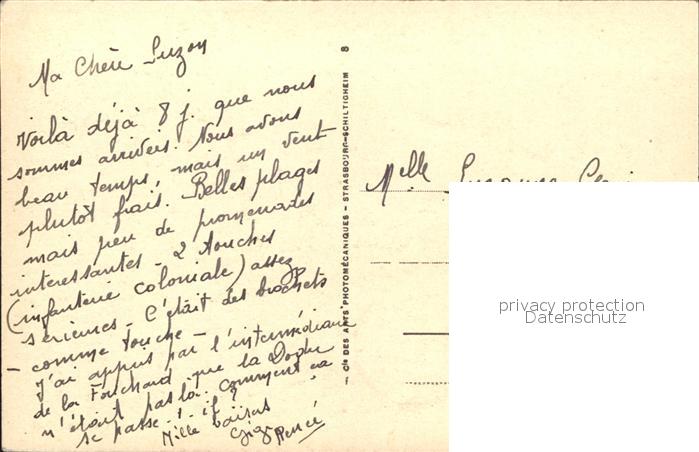 Ma Chère Suzon
Voilà déjà 8 j. que nous
sommes arrivées. Nous avons
beau temps, mais un vent
plutôt frais. Belles plages
mais peu de promenades
interessantes - 2 touches
(infanterie coloniale) assez
sérieuses - C'était des brochets
comme touche -
- J'ai appris par l'intermédiaire
de la Fouchard que la
n'était pas là. Comment ça
se passe-t-il ?
Mille baisers
Renée
8
— Cie DES ARTS PHOTOMÉCANIQUES - STRASBOURG-SCHILTIGHEIM
Melle Suzanne
privacy protection
Datenschutz